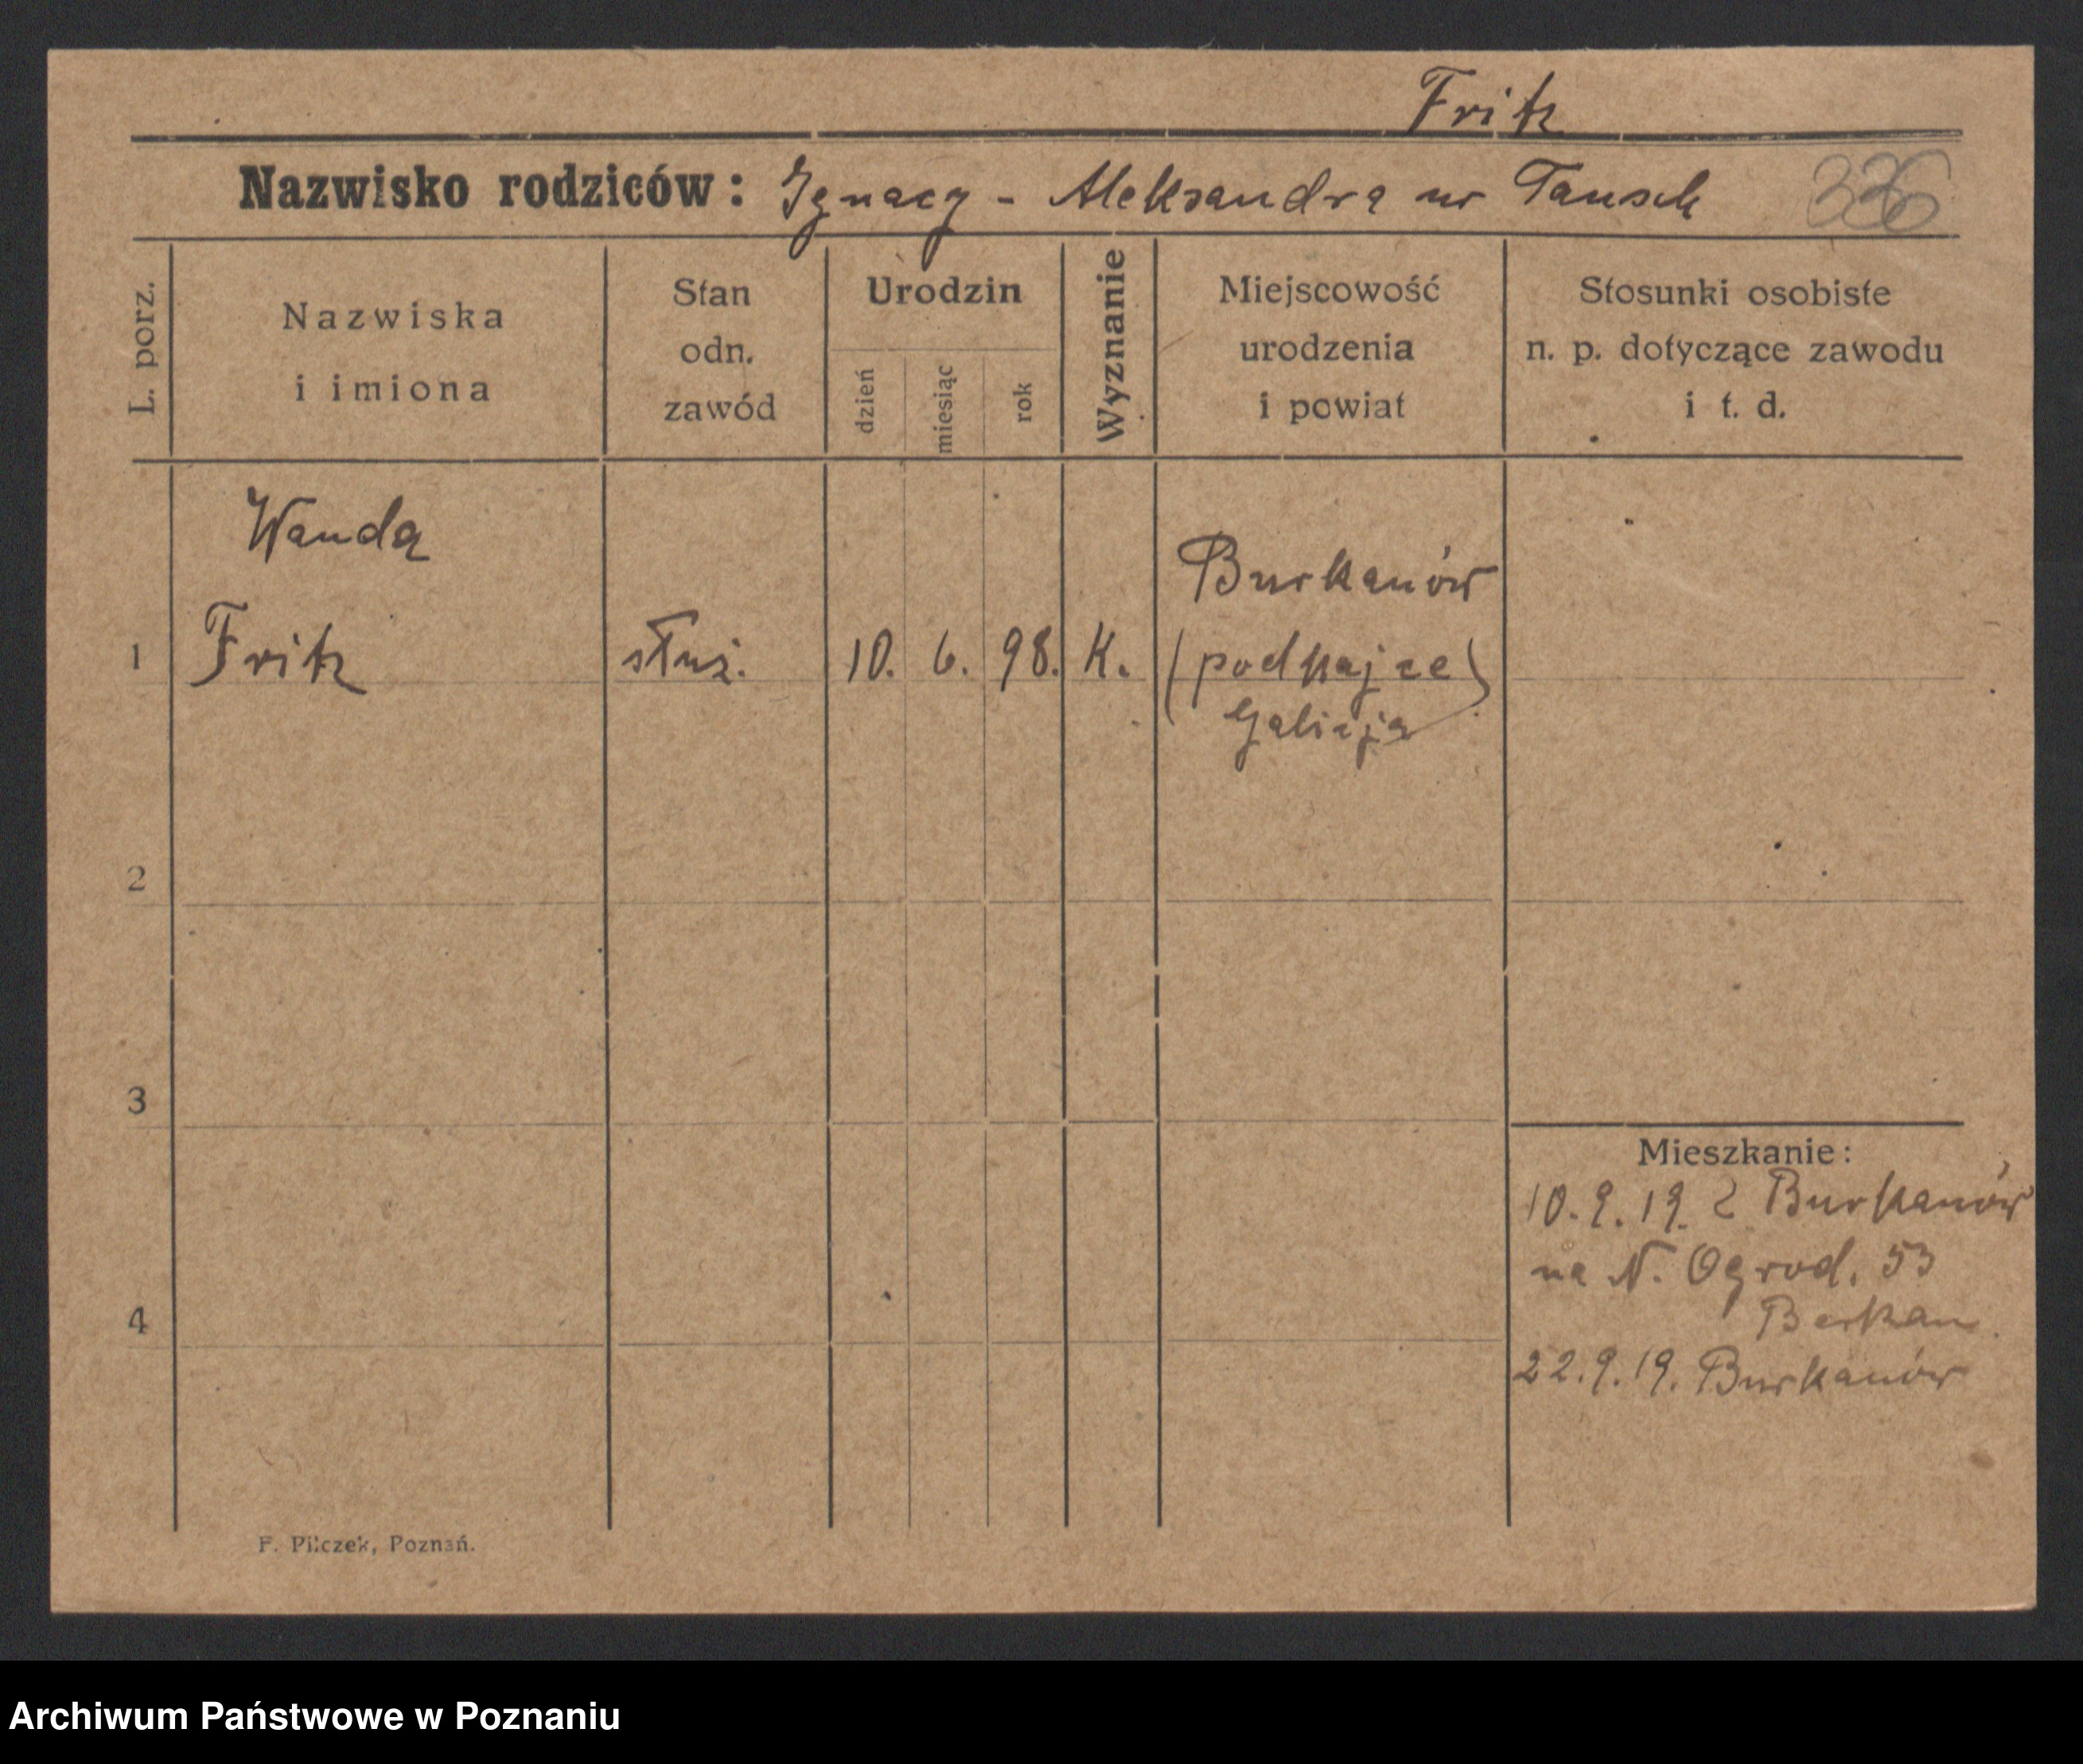 Fritz
Nazwisko rodziców: Ignacy - Aleksandra ur Tausch 336
L. porz.
Nazwiska
i imiona
Stan
odn.
zawód
Urodzin
dzień
miesiąc
rok
Wyznanie
Miejscowość
urodzenia
i powiat
Stosunki osobiste
n. p. dotyczące zawodu
i t. d.
1
Wanda
Fritz
służ.
10. 6. 98. K.
Burkanów
(podhajce)
Galicja
2
3
4
Mieszkanie:
10.9.19. z Burkanów
na N. Ogrod. 53
22.9.19. Burkanów
F. Pilczek, Poznań.
Archiwum Państwowe w Poznaniu